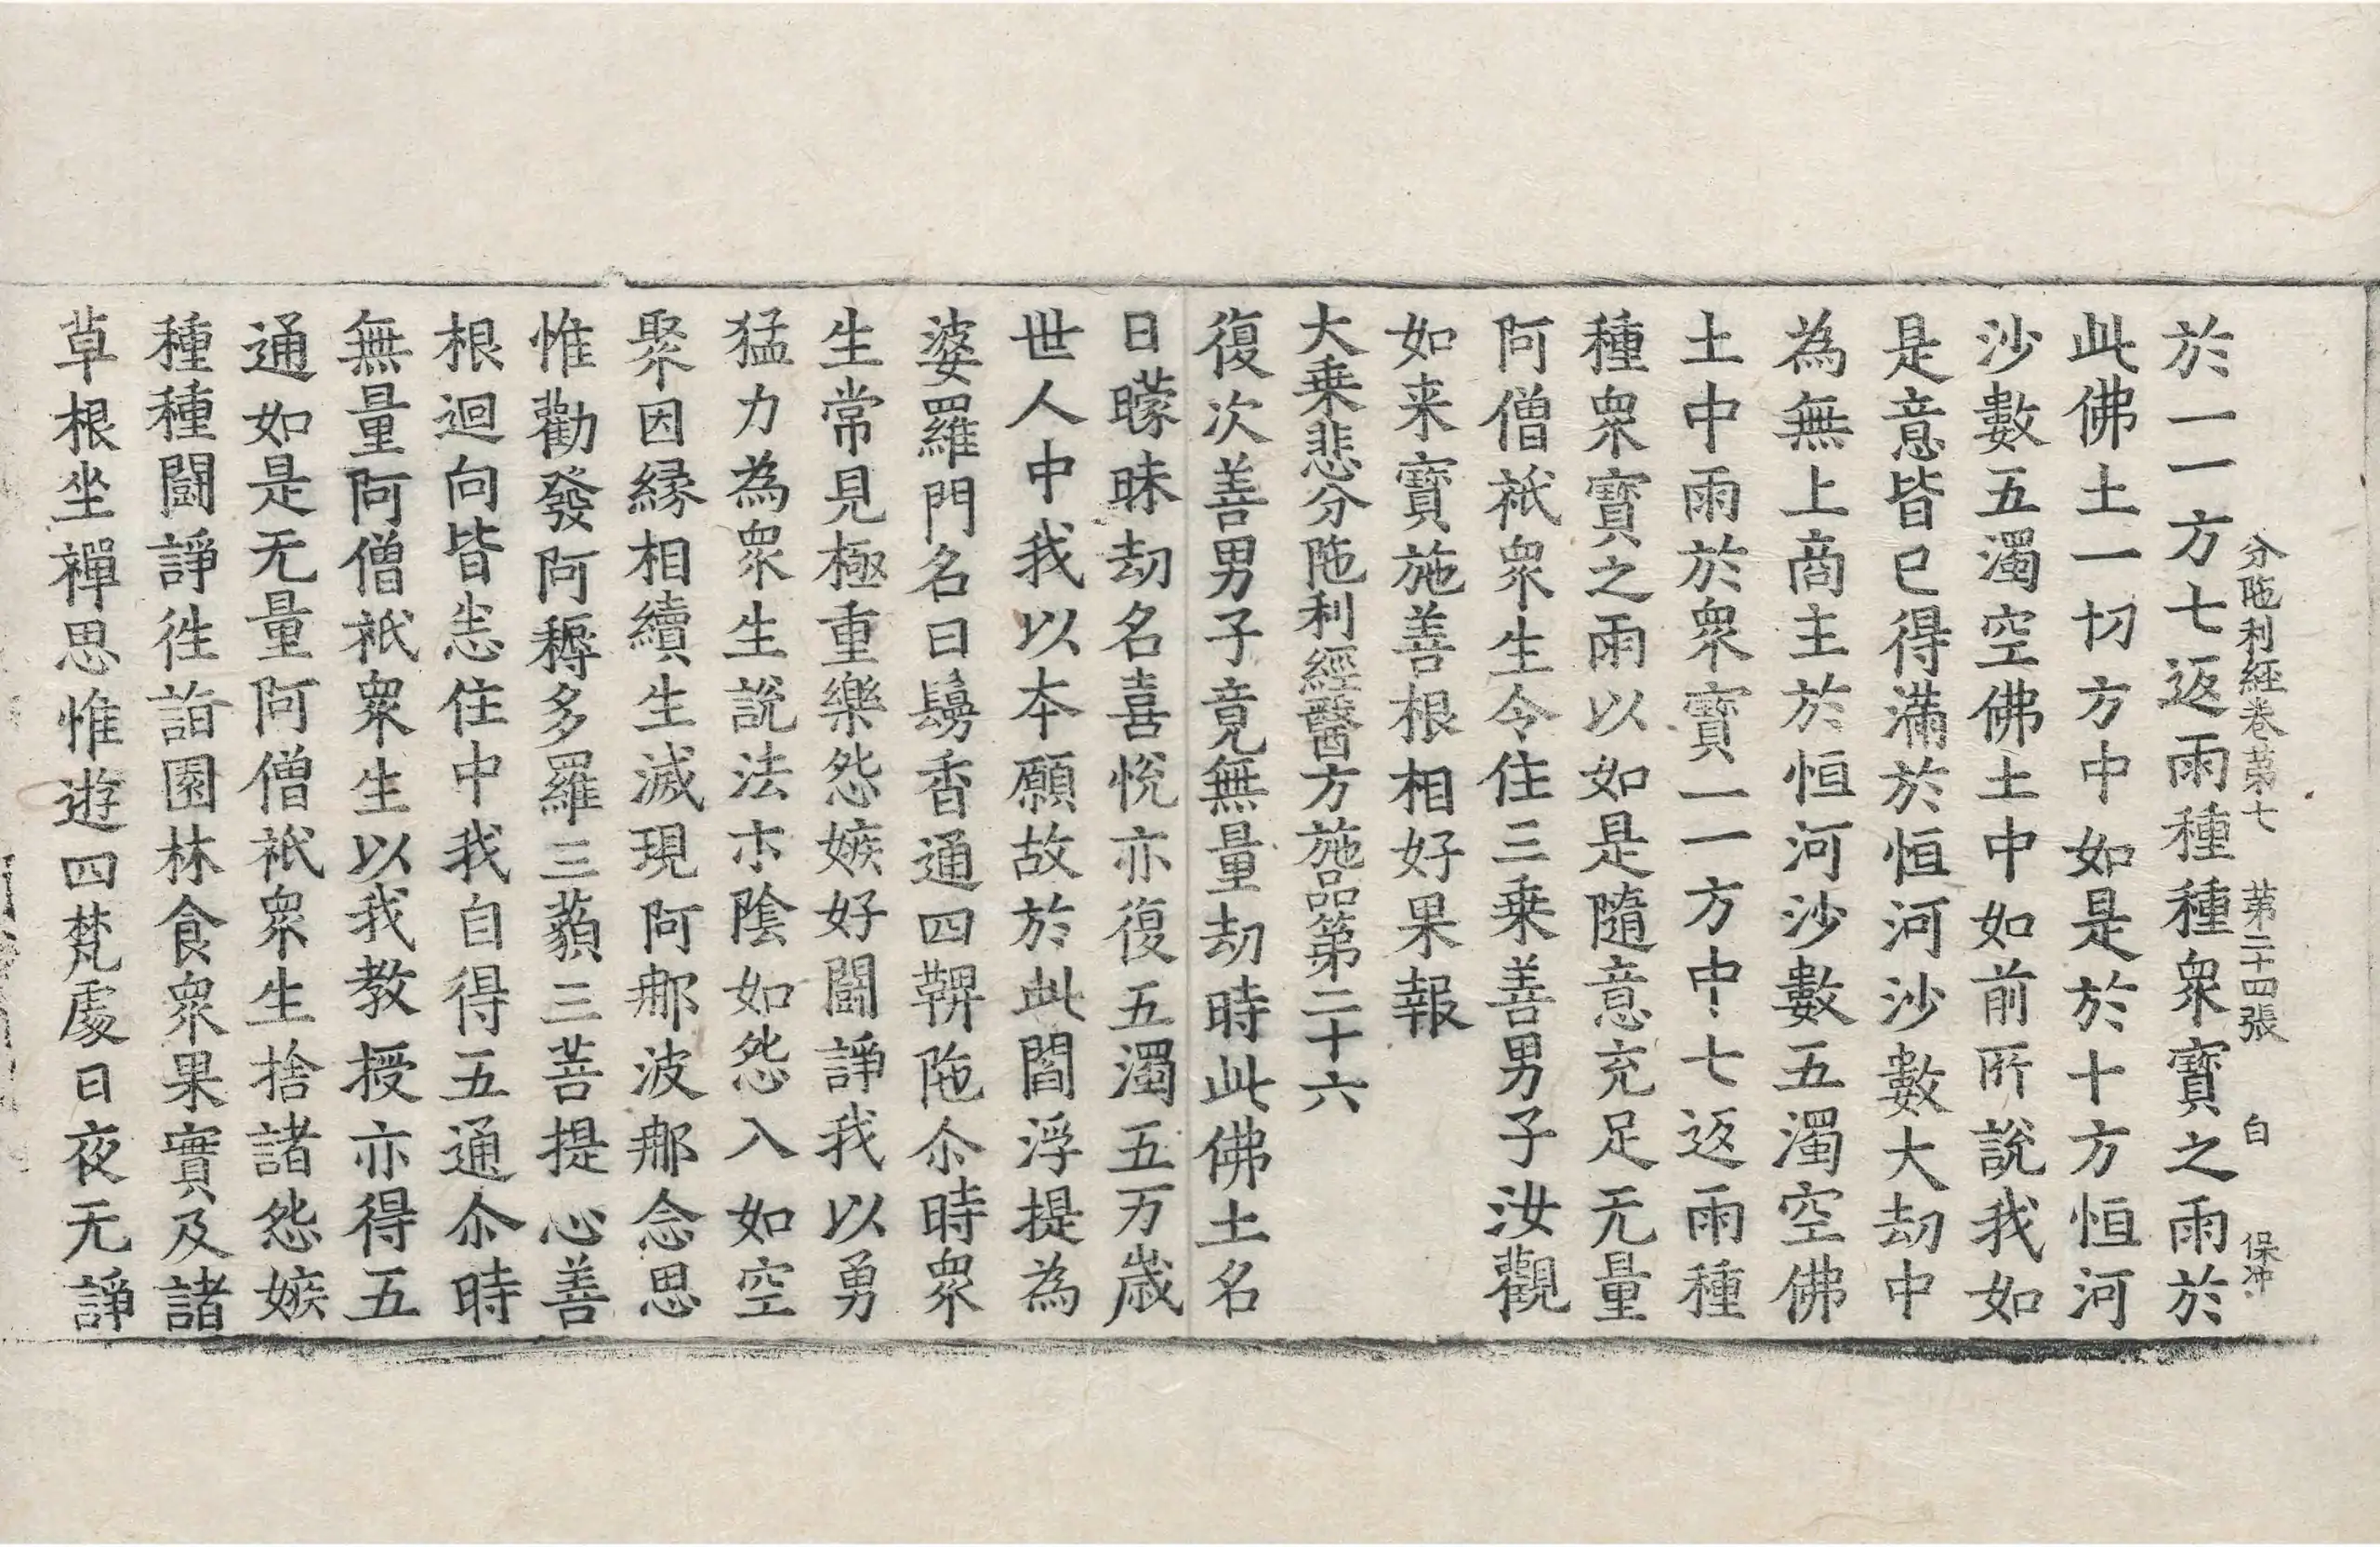 分陁利経卷苐七 苐二十四張 白 保冲
於一一方七返雨種種衆寶之雨於
此佛土一切方中如是於十方恒河
沙數五濁空佛土中如前所說我如
是意皆已得滿於恒河沙數大劫中
為無上商主於恒河沙數五濁空佛
土中雨於衆寶一一方中七返雨種
種衆寶之雨以如是隨意充足无量
阿僧祇衆生令住三乗善男子汝觀
如来寶施善根相好果報
大乗悲分陁利經醫方施品第二十六
復次善男子竟無量劫時此佛土名
曰矇昧劫名喜悅亦復五濁五万歲
世人中我以本願故於此閻浮提為
婆羅門名曰鬘香通四鞞陁尒時衆
生常見極重樂怨嫉好鬪諍我以勇
猛力為衆生說法示陰如怨入如空
聚因縁相續生滅現阿那波那念思
惟勸發阿耨多羅三藐三菩提心善
根迴向皆悉住中我自得五通尒時
無量阿僧祇衆生以我教授亦得五
通如是无量阿僧祇衆生捨諸怨嫉
種種鬪諍徃詣園林食衆果實及諸
草根坐禪思惟遊四梵處日夜无諍